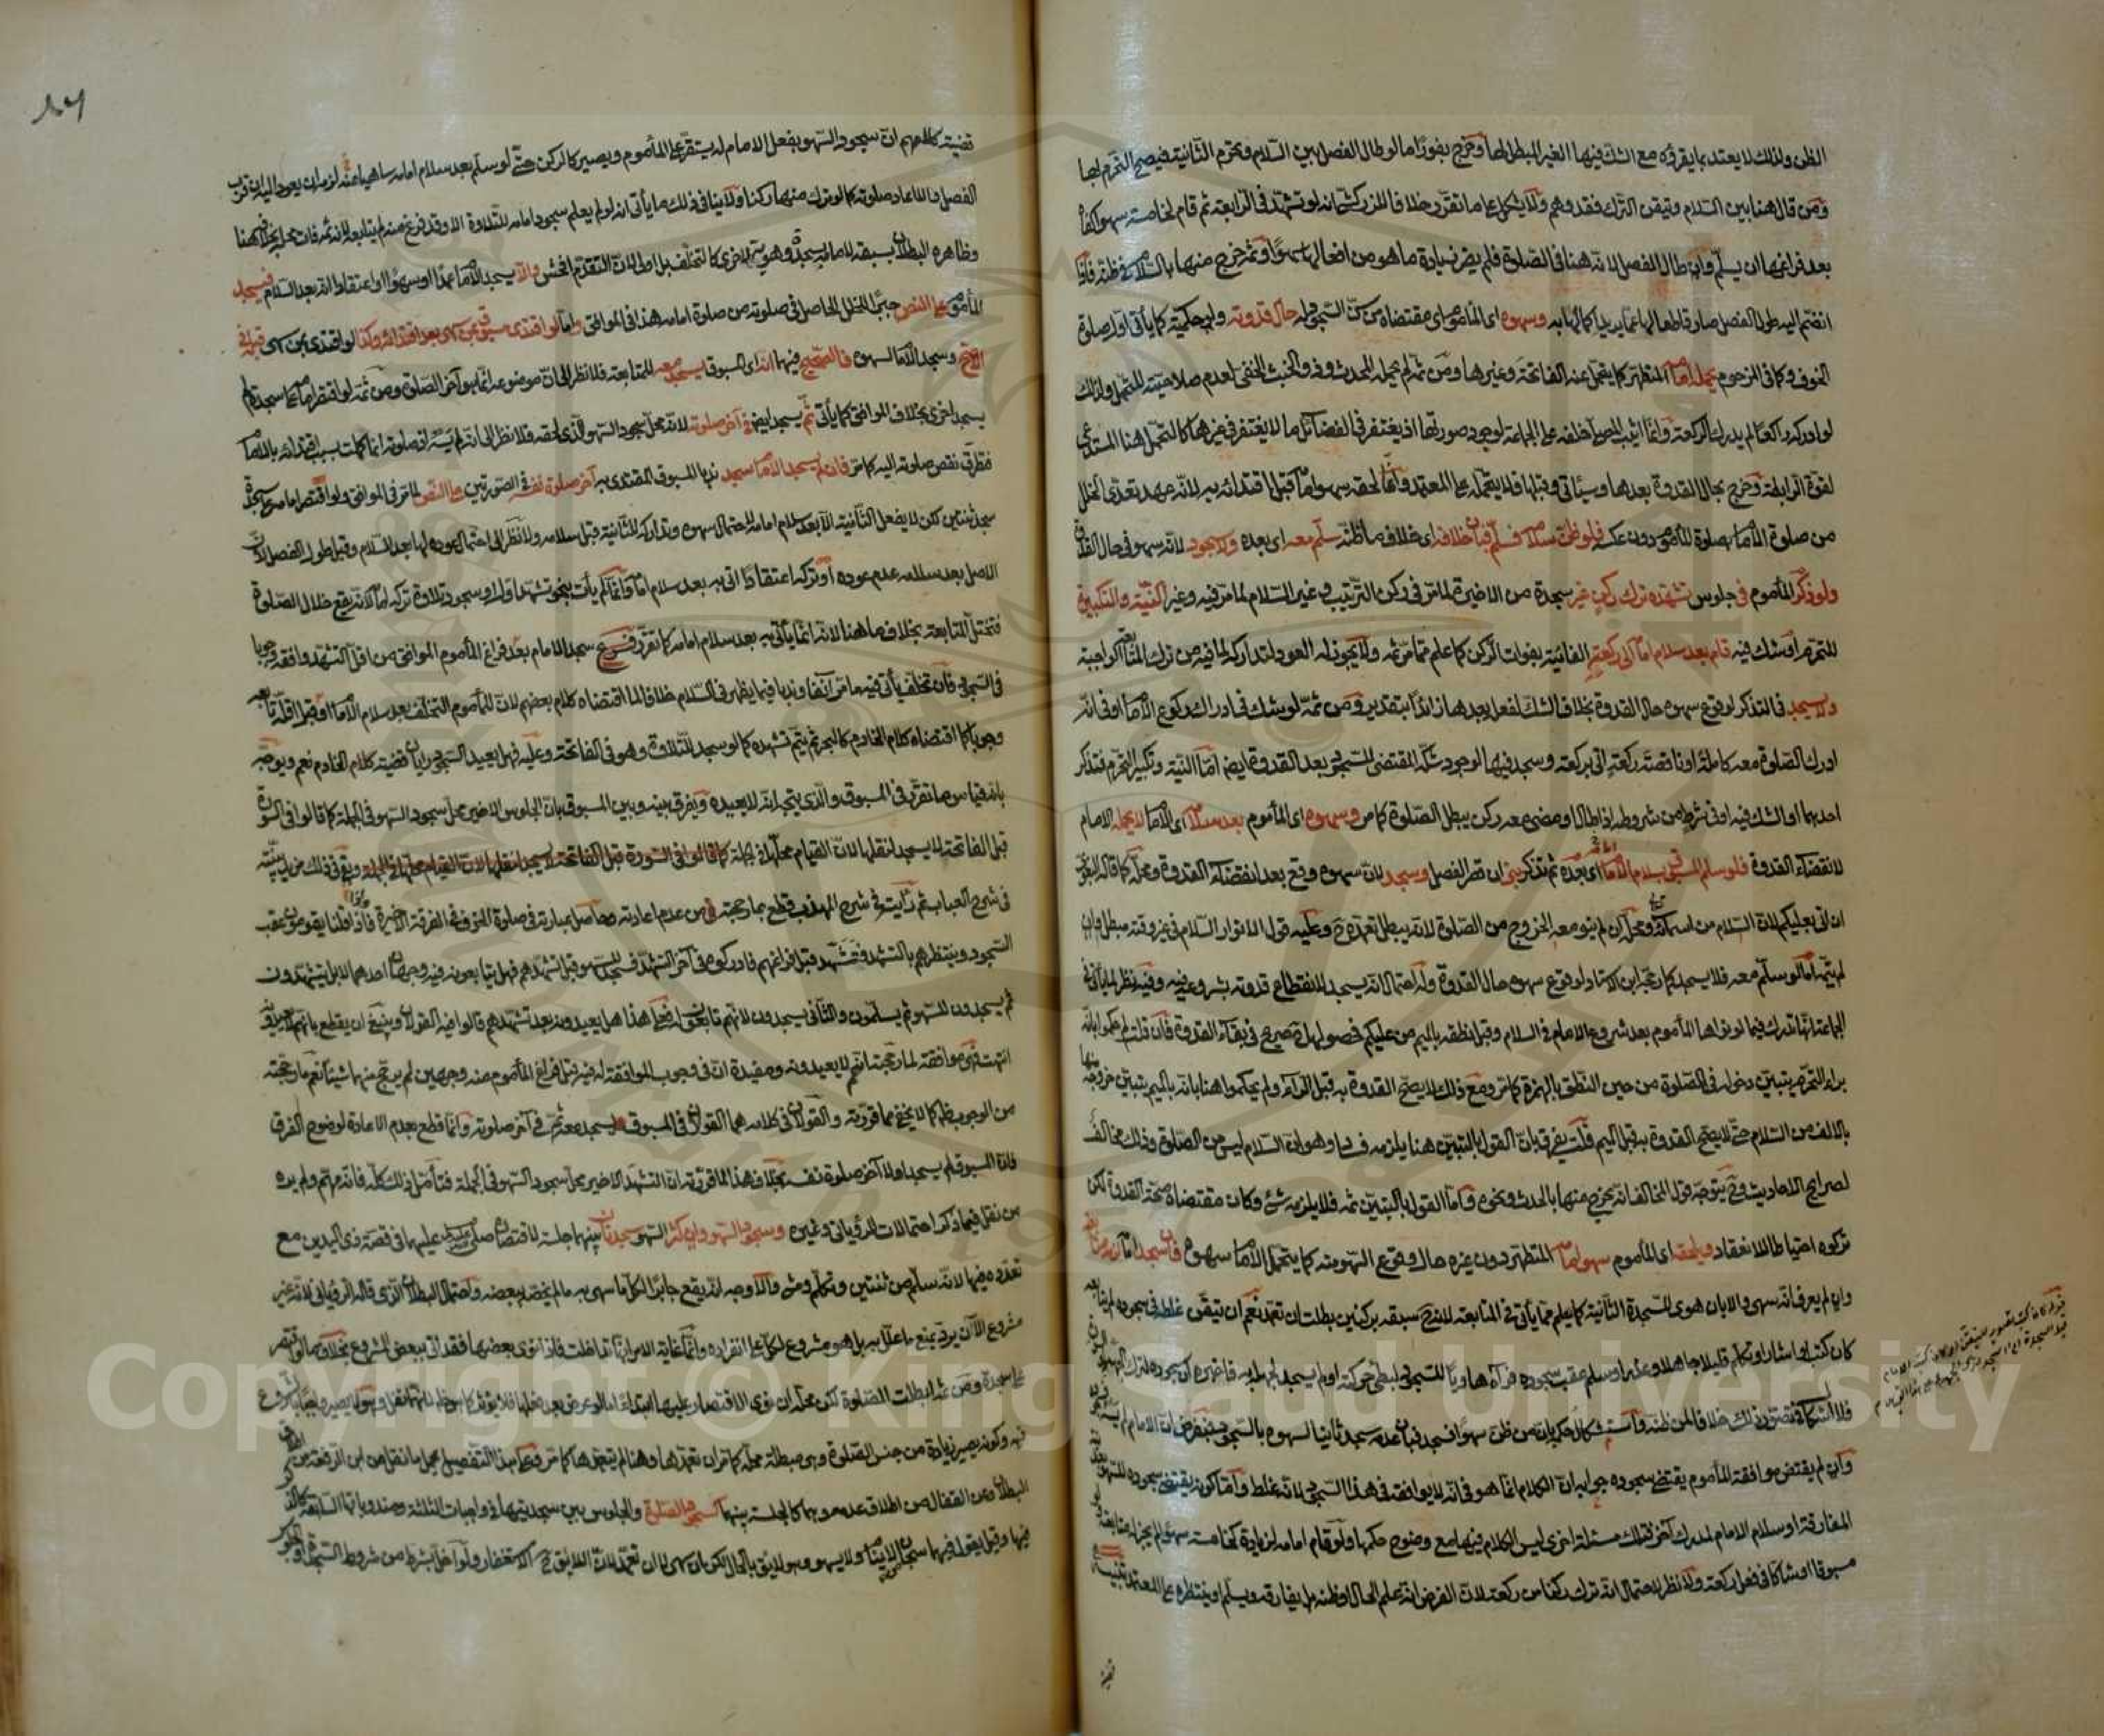 الظن ولذلك لا يعتد بما يقرؤه مع الشك فيها الغير المبطل لها وخرج بفورا ما لو طال الفصل بين السلام وتحرم الثانية فيصح التحرم بها
ومن قال هنا بين السلام وتيقن الترك فقد وهم ولا يشكل على ما تقرر خلافا للزركشي انه لو تشهد في الرابعة ثم قام لخامسة سهوا كفاه
بعد فراغها ان يسلم وان طال الفصل لانه هنا في الصلوة فلم يضر زيادة ما هو من افعالها سهوا وثم خرج منها بالسلام في ظنه فاذا
انضم اليه طول الفصل صار قاطعا لها عما يريد اكمالها به وسهوه اي المأموم اي مقتضاه من سن السجود له حال قدوته ولو حكمية كما يأتي اول صلوة
الخوف وكما في المزحوم يحمله امامه المتطهر كما يتحمل عنه الفاتحة وغيرها ومن ثم لم يحمله المحدث وذو الخبث الخفي لعدم صلاحيته للتحمل ولذلك
لو ادركه راكعا لم يدرك الركعة وانما اثيب المصلي خلفه على الجماعة لوجود صورتها اذ يغتفر في الفضائل ما لا يغتفر في غيرها كالتحمل هنا المستدعي
لقوة الرابطة وخرج بحال القدوة بعدها وسيأتي وقبلها فلا يتحمله على المعتمد وانما لحقه سهو امامه قبل اقتدائه به لانه عهد تعدي الخلل
من صلوة الامام لصلوة المأموم دون عكسه فلو ظن سلامه فسلم فبان خلافه اي خلاف ما ظنه سلم معه اي بعده ولا سجود لانه سهو في حال القدوة
ولو ذكر المأموم في جلوس تشهده ترك ركن غير سجدة من الاخيرة لما مر في ركن الترتيب وغير السلام لما مر فيه وغير النية والتكبيرة
للتحرم او شك فيه قام بعد سلام امامه الى ركعته الفائتة بفوات الركن كما علم مما مر ثم ولا يجوز له العود لتداركه لما فيه من ترك المتابعة الواجبة
ولا يسجد في التذكر لوقوع سهوه حال القدوة بخلاف الشك لفعله بعدها زائدا بتقدير ومن ثم لو شك في ادراك ركوع الامام او في انه
ادرك الصلوة معه كاملة او ناقصة ركعة اتى بركعة وسجد فيها لوجود شكه المقتضي للسجود بعد القدوة ايضا اما النية وتكبير التحرم فتذكر
احدهما او الشك فيه او في شرط من شروطه اذا طال او مضى معه ركن يبطل الصلوة كما مر وسهوه اي المأموم بعد سلامه اي الامام لا يحمله الامام
لانقضاء القدوة فلو سلم المسبوق بسلام امامه اي بعده ثم تذكر بنى ان قصر الفصل وسجد لان سهوه وقع بعد انقضاء القدوة ومحله كما قاله البغوي
ان اتى بعليكم لان السلام من اسمائه ومحله ان لم ينو معه الخروج من الصلوة لانه يبطل تعمده ح وعليه قول الانوار السلام في غير وقته مبطل وان
لم يتمه اما لو سلم معه فلا يسجد كما رجحه ابن الاستاد لوقوع سهوه حال القدوة وله احتمال انه يسجد لانقطاع قدوته بشروعه فيه وفيه نظر لما يأتي في
الجماعة انها تدرك فيما لو نواها المأموم بعد شروع الامام في السلام وقبل نطقه بالميم من عليكم فحصولها صريح في بقاء القدوة فان قلت لم حكموا بانه
براء التحرم يتبين دخوله في الصلوة من حين النطق بالهمزة كما مر ومع ذلك لا يصح القدوة به قبل الراء ولم يحكموا هنا بانه بالميم يتبين خروجه منها
بالالف من السلام حتى لا يصح القدوة به قبل الميم قلت يفرق بان القول بالتبين هنا يلزمه فساد وهو ان السلام ليس من الصلوة وذلك مخالف
لصرايح الاحاديث وح يتوجه قول المخالف انه يخرج منها بالحدث ونحوه واما القول بالتبين ثم فلا يلزمه شئ وكان مقتضاه صحة القدوة لكن
تركوه احتياطا للانعقاد ويلحقه اي المأموم سهو امامه المتطهر دون غيره حال وقوع السهو منه كما يتحمل الامام سهوه فان سجد امامه لزمه متابعته
وان لم يعرف انه سهى والا بان هوى للسجدة الثانية كما يعلم مما يأتي في المتابعة لانه ح سبقه بركنين بطلت ان تعمد نعم ان تيقن غلطه في سجوده لم يتابعه
كان كتب او اشار او تكلم قليلا جاهلا وعذر او سلم عقب سجوده فرآه هاويا للسجود لبطئ حركته او لم يسجد لجهله به فاخبره ان سجوده لترك
فلا اشكال في تصور ذلك خلافا لمن ظنه واستشكال حكمه بان من ظن سهوا فسجد فبان عدمه سجد ثانيا لسهوه بالسجود فبفرض ان الامام لم يسه
وان لم يقتض موافقة المأموم يقتضي سجوده جوابه ان الكلام انما هو في انه لا يوافقه في هذا السجود لانه غلط واما كونه يقتضي سجوده للسهو
المفارقة او سلام الامام لمدرك آخر فتلك مسئلة اخرى ليس الكلام فيها مع وضوح حكمها ولو قام امامه لزيادة كخامسة سهوا لم يجز له متابعته
مسبوقا او شاكا في فعل ركعة ولا نظر لاحتمال انه ترك ركنا من ركعة لان الفرض انه علم الحال او ظنه بل يفارقه ويسلم او ينتظره على المعتمد تنبيه
قضية
قضية كلامهم ان سجود السهو بفعل الامام له يستقر على المأموم ويصير كالركن حتى لو سلم بعد سلام امامه ساهيا عنه لزمه ان يعود اليه ان قرب
الفصل والا اعاد صلوته كما لو ترك منها ركنا ولا ينافي ذلك ما يأتي انه لو لم يعلم سجود امامه للتلاوة الا وقد فرغ منه لم يتابعه لانه ثم فات محله بخلافه هنا
وظاهره البطلان بسبقه للامام بسجدة وهويه للاخرى كالتخلف بل اولى لان التقدم افحش والا يسجد الامام عمدا او سهوا او اعتقادا انه بعد السلام فيسجد
المأموم على النص جبرا للخلل الحاصل في صلوته من صلوة امامه هذا في الموافق واما لو اقتدى مسبوق بمن سهى بعد اقتدائه وكذا لو اقتدى بمن سهى قبله في
الاصح وسجد الامام لسهوه فالصحيح فيهما انه اي المسبوق يسجد معه للمتابعة فلا نظر الى ان موضوعه انما هو آخر الصلوة ومن ثم لو اقتصر امامه على سجدة لم
يسجد اخرى بخلاف الموافق كما يأتي ثم يسجد ايضا في آخر صلوته لانه محل سجود السهو الذي لحقه فلا نظر الى انه لم يسه لان صلوته انما كملت بسبب اقتدائه بالامام
فتطرق نقص صلوته اليه كما مر فان لم يسجد الامام سجد ندبا المسبوق المقتدى به آخر صلوة نفسه في الصورتين على النص لما مر في الموافق ولو اقتصر امامه على سجدة
سجد ثنتين لكن لا يفعل الثانية الا بعد سلام امامه لاحتمال سهوه وتداركه للثانية قبل سلامه ولا نظر الى احتمال عوده لها بعد السلام وقبل طول الفصل لان
الاصل بعد سلامه عدم عوده او تركه اعتقادا اتى به بعد سلام امامه وانما لم يأت بنحو تشهد اول او سجود تلاوة تركه امامه لانه يقع خلال الصلوة
فتختل المتابعة بخلاف ما هنا لانه انما يأتي به بعد سلام امامه كما تقرر فرع سجد الامام بعد فراغ المأموم الموافق من اقل التشهد وافقه وجوبا
في السجود فان تخلف يأتي فيه ما مر آنفا وندبا فيما يظهر في السلام خلافا لما اقتضاه كلام بعضهم لان للمأموم التخلف بعد سلام الامام او قبل اقله تابعه
وجوبا كما اقتضاه كلام الخادم كالبحر ثم يتم تشهده كما لو سجد للتلاوة وهو في الفاتحة وعليه فهل يعيد السجود رأيان قضية كلام الخادم نعم ويوجه
بانه قياس ما تقرر في المسبوق والذي يتجه انه لا يعيده ويفرق بينه وبين المسبوق بان الجلوس الاخير محل سجود السهو في الجملة كما قالوا في السورة
قبل الفاتحة لا يسجد لنقلها لان القيام محلها في الجملة وبقي في ذلك مزيد بينته
في شرح العباب ثم رأيته في شرح المهذب قطع بما رجحته من عدم اعادته وحاصل عبارته في صلوة الخوف في الفرقة الاخيرة فاذا قلنا يقومون عقب
السجود وينتظرهم بالتشهد فتشهد قبل فراغهم فادركوه في آخر التشهد فسجد للسهو قبل تشهدهم فهل يتابعونه فيه وجهان احدهما لا بل يتشهدون
ثم يسجدون للسهو ثم يسلمون والثاني يسجدون لانهم تابعون له فعلى هذا هل يعيدونه بعد تشهدهم قالوا فيه القولان وينبغي ان يقطع بانهم لا يعيدونه
انتهت فهي موافقة لما رجحته انهم لا يعيدونه ومفيدة ان في وجوب الموافقة له فيه قبل فراغ المأموم منه وجهين لم يرجح منهما شيئا نعم ما رجحته
من الوجوب ظاهر كما لا يخفى مما قررته والقولان في كلامه هما القولان في المسبوق يسجد معه ثم في آخر صلوته وانما قطع بعدم الاعادة لوضوح الفرق
فان المسبوق لم يسجد اولا آخر صلوة نفسه بخلاف هذا لما قررته ان التشهد الاخير محل سجود السهو في الجملة فتأمل ذلك كله فانه مهم ولم يره
من نقل فيما ذكر احتمالات للرؤياني وغيره وسجود السهو وان كثر السهو سجدتان بينهما جلسة لاقتصاره صلى الله عليه وسلم عليهما في قصة ذي اليدين مع
تعدده فيها لانه سلم من ثنتين وتكلم ومشى والاوجه انه يقع جابرا لكل ما سهى به ما لم يخصه ببعضه واحتمال البطلان الذي قاله الروياني لانه غير
مشروع الآن يرد بمنع ما علل به بل هو مشروع لكل على انفراده وانما غاية الامر انها تداخلت فاذا نوى بعضها فقد اتى ببعض المشروع بخلاف ما لو اقتصر
على سجدة ومن ثم ابطلت الصلوة لكن محله ان نوى الاقتصار عليها ابتداء اما لو عرض بعد فعلها فلا يؤثر
فيه وكونه يصير زيادة من جنس الصلوة وهي مبطلة محله كما مر ان تعمدها وهنا لم يتعمدها كما مر وعلى هذا التفصيل يحمل ما نقل عن ابن الرفعة من
البطلان وعن القفال من اطلاق عدمه وهما كالجلسة بينهما كسجود الصلوة والجلوس بين سجدتيها في واجبات الثلثة ومندوباتها السابقة كالذكر
فيها وقيل يقول فيهما سبحان من لا ينام ولا يسهو وهو لائق بالحال لكن ان سهى لا ان تعمد لان اللائق ح الاستغفار ولو اخل بشرط من شروط السجدة او الجلوس